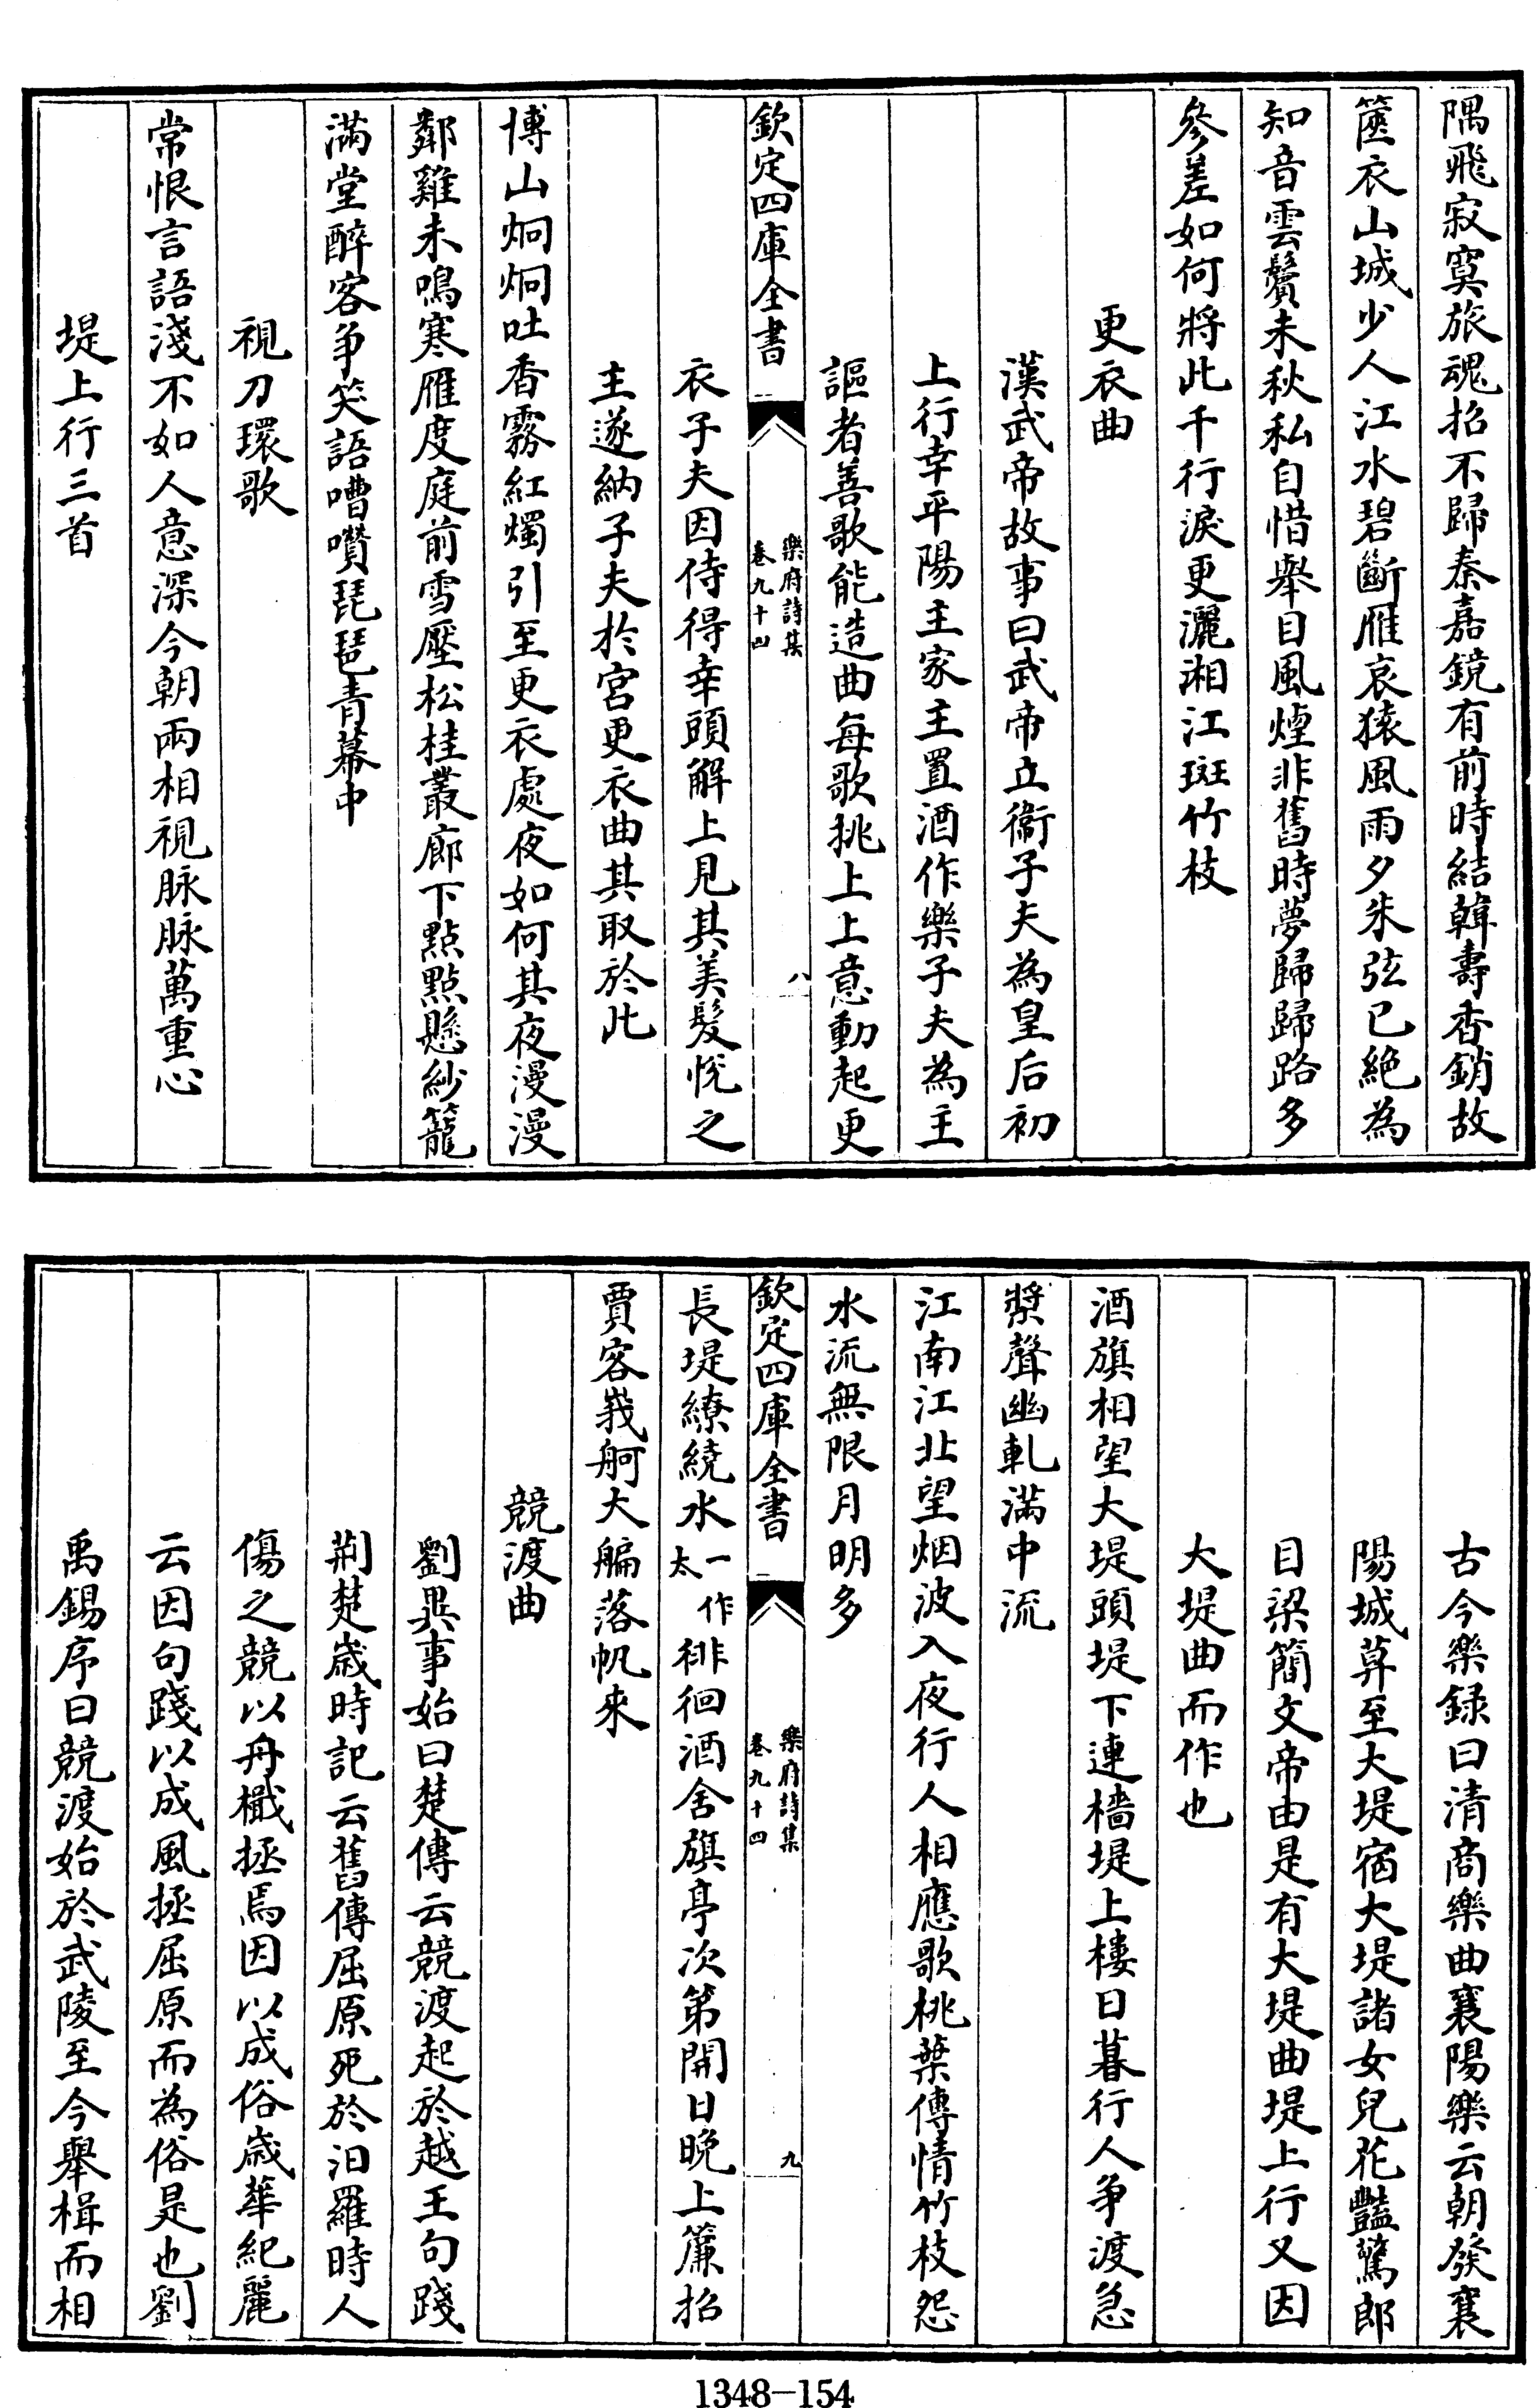 隅飛寂寞旅魂招不歸秦嘉鏡有前時結韓壽香銷故
篋衣山城少人江水碧斷雁哀猿風雨夕朱弦已絶為
知音雲鬢未秋私自惜舉目風煙非舊時夢歸歸路多
參差如何將此千行淚更灑湘江斑竹枝
更衣曲
漢武帝故事曰武帝立衞子夫為皇后初
上行幸平陽主家主置酒作樂子夫為主
謳者善歌能造曲每歌挑上上意動起更
欽定四庫全書
樂府詩集
卷九十四
八
衣子夫因侍得幸頭解上見其美髮悅之
主遂納子夫於宮更衣曲其取於此
博山炯炯吐香霧紅燭引至更衣處夜如何其夜漫漫
鄰雞未鳴寒雁度庭前雪壓松桂叢廊下點點懸紗籠
滿堂醉客爭笑語嘈囋琵琶青幕中
視刀環歌
常恨言語淺不如人意深今朝兩相視脉脉萬重心
堤上行三首
古今樂録曰清商樂曲襄陽樂云朝發襄
陽城莫至大堤宿大堤諸女兒花豔驚郎
目梁簡文帝由是有大堤曲堤上行又因
大堤曲而作也
酒旗相望大堤頭堤下連檣堤上樓日暮行人爭渡急
槳聲幽軋滿中流
江南江北望烟波入夜行人相應歌桃葉傳情竹枝怨
水流無限月明多
欽定四庫全書
樂府詩集
卷九十四
九
長堤繚繞水一作太徘徊酒舍旗亭次第開日晚上簾招
賈客峩舸大艑落帆來
競渡曲
劉異事始曰楚傳云競渡起於越王句踐
荆楚歲時記云舊傳屈原死於汨羅時人
傷之競以舟檝拯焉因以成俗歲華紀麗
云因句踐以成風拯屈原而為俗是也劉
禹錫序曰競渡始於武陵至今舉楫而相
1348-154